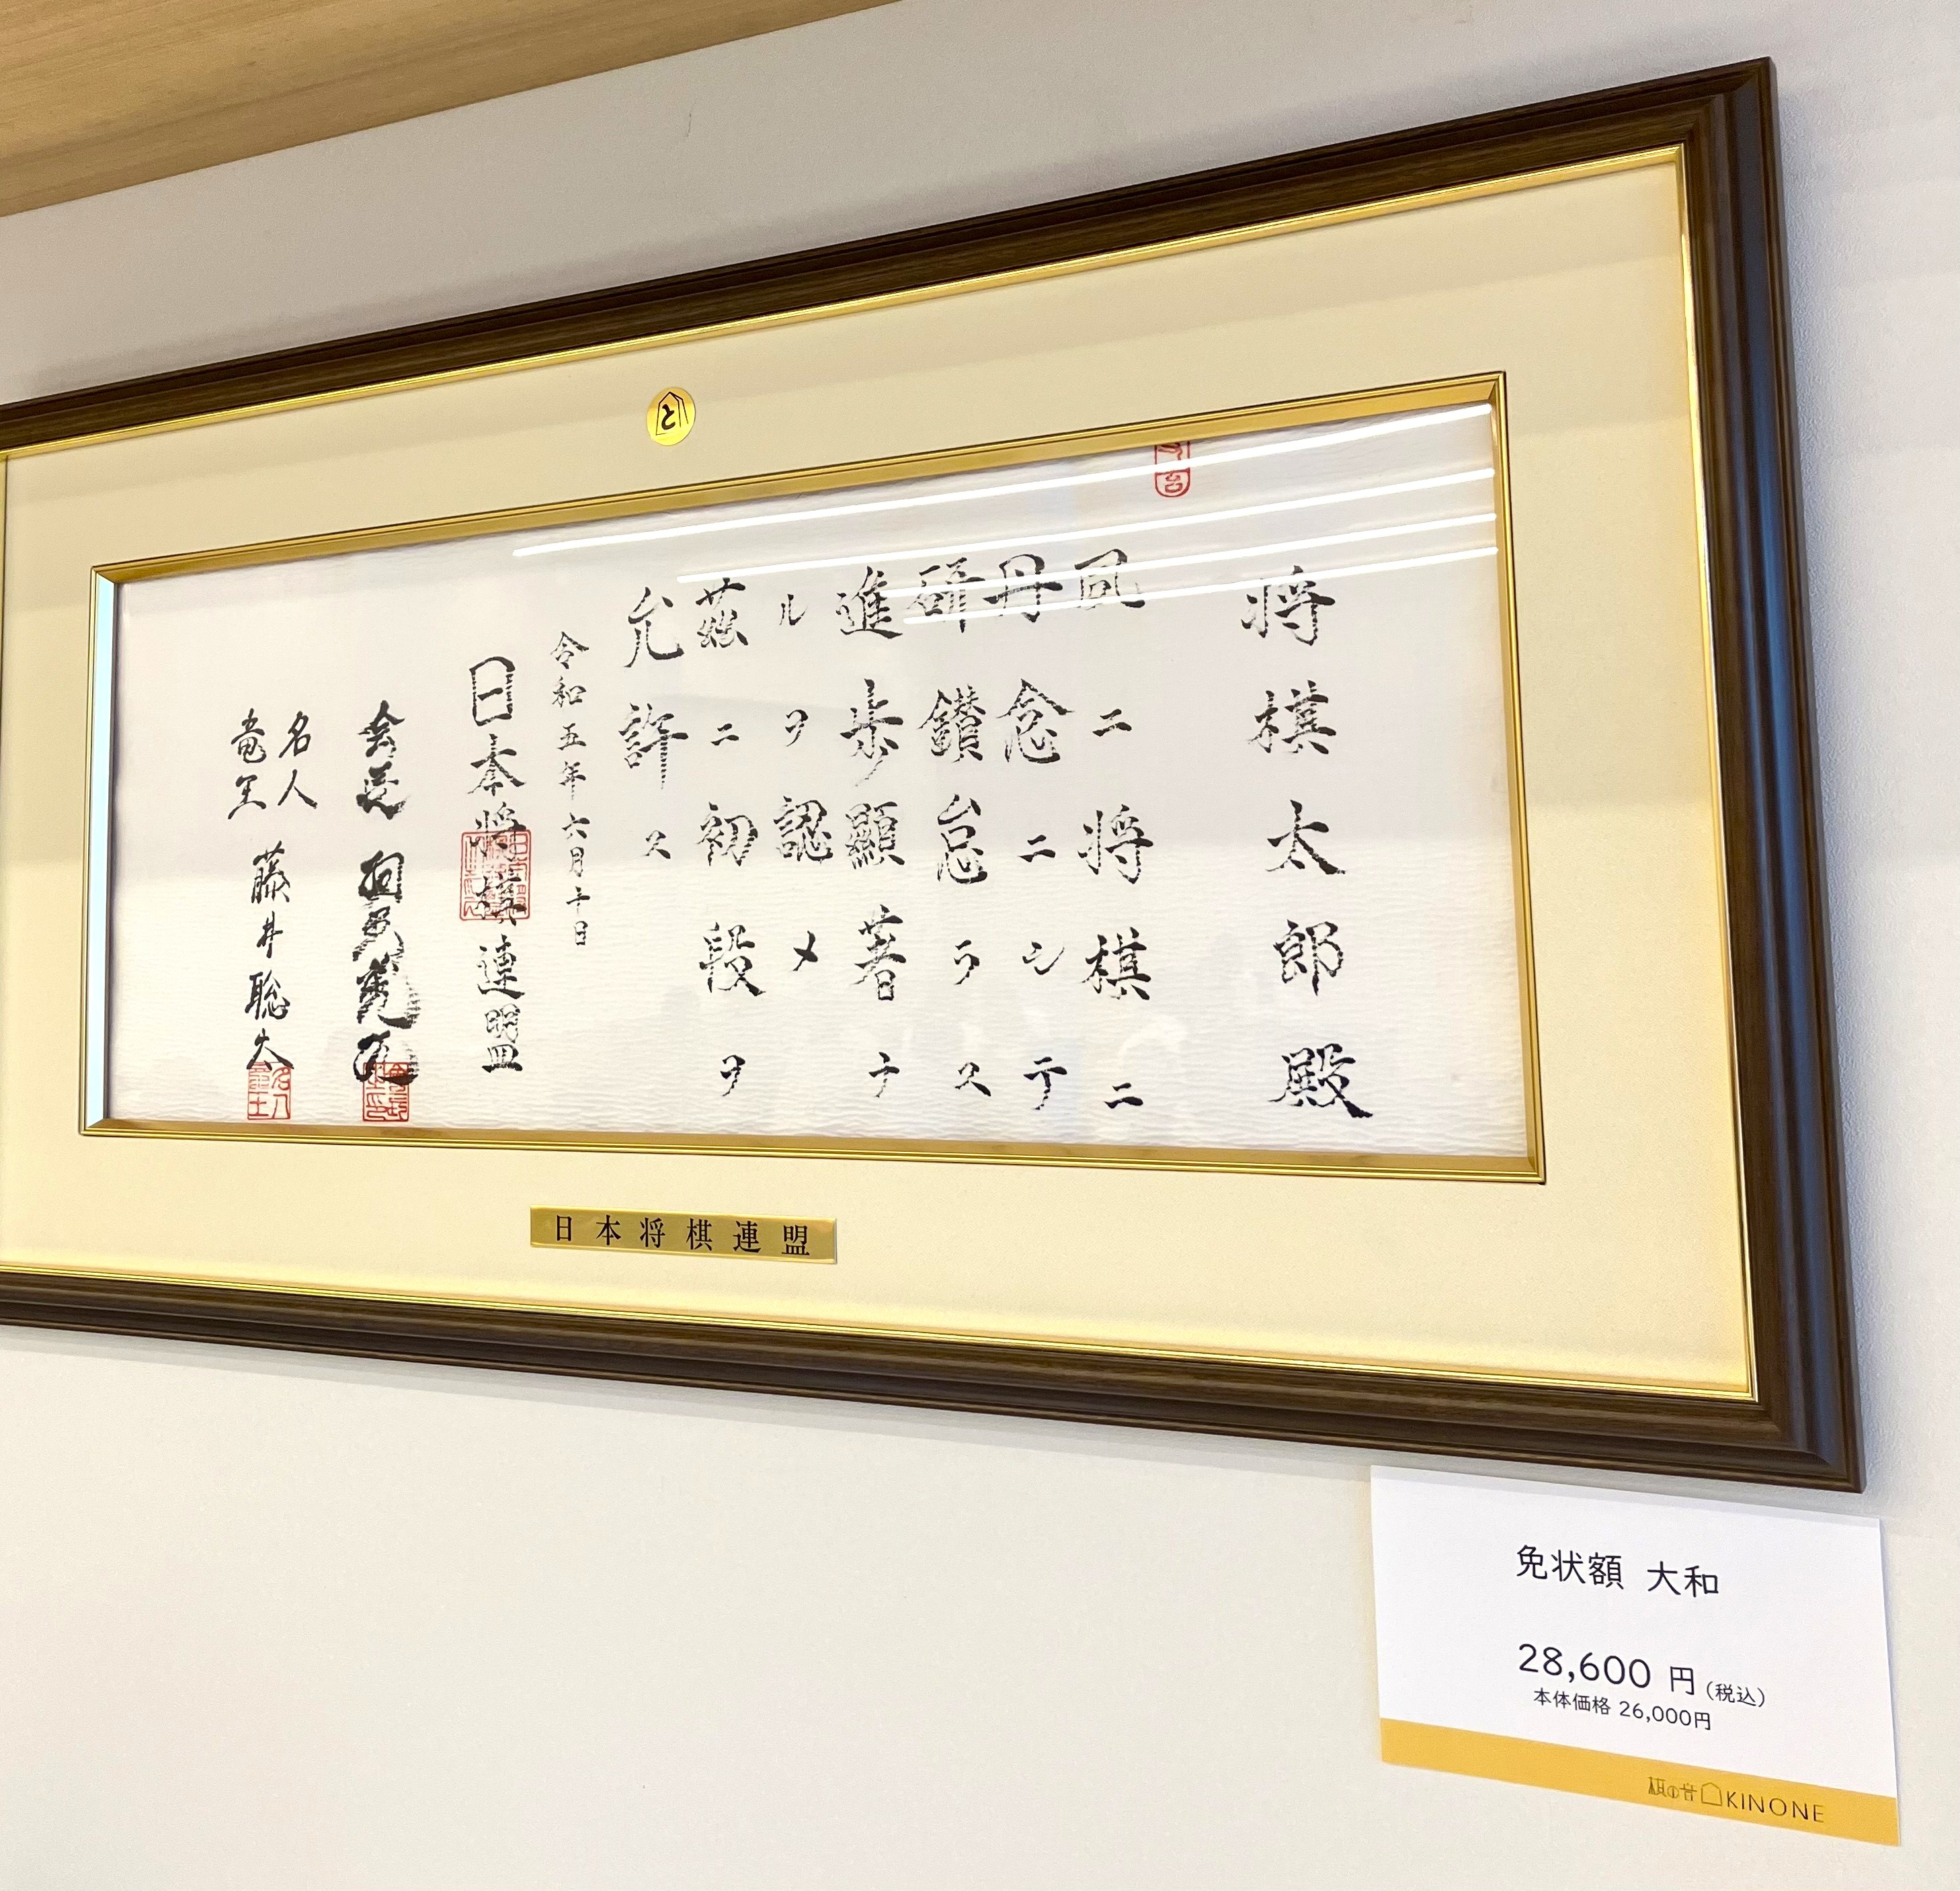 と
将棋太郎殿
夙ニ将棋ニ
丹念ニシテ
研鑚怠ラス
進歩顯著ナ
ルヲ認メ
茲ニ初段ヲ
允許ス
令和五年六月十日
日本将棋連盟
会長
名人
竜王
藤井聡太
日本将棋連盟
免状額 大和
28,600 円 (税込)
本体価格 26,000円
棋の音 KINONE